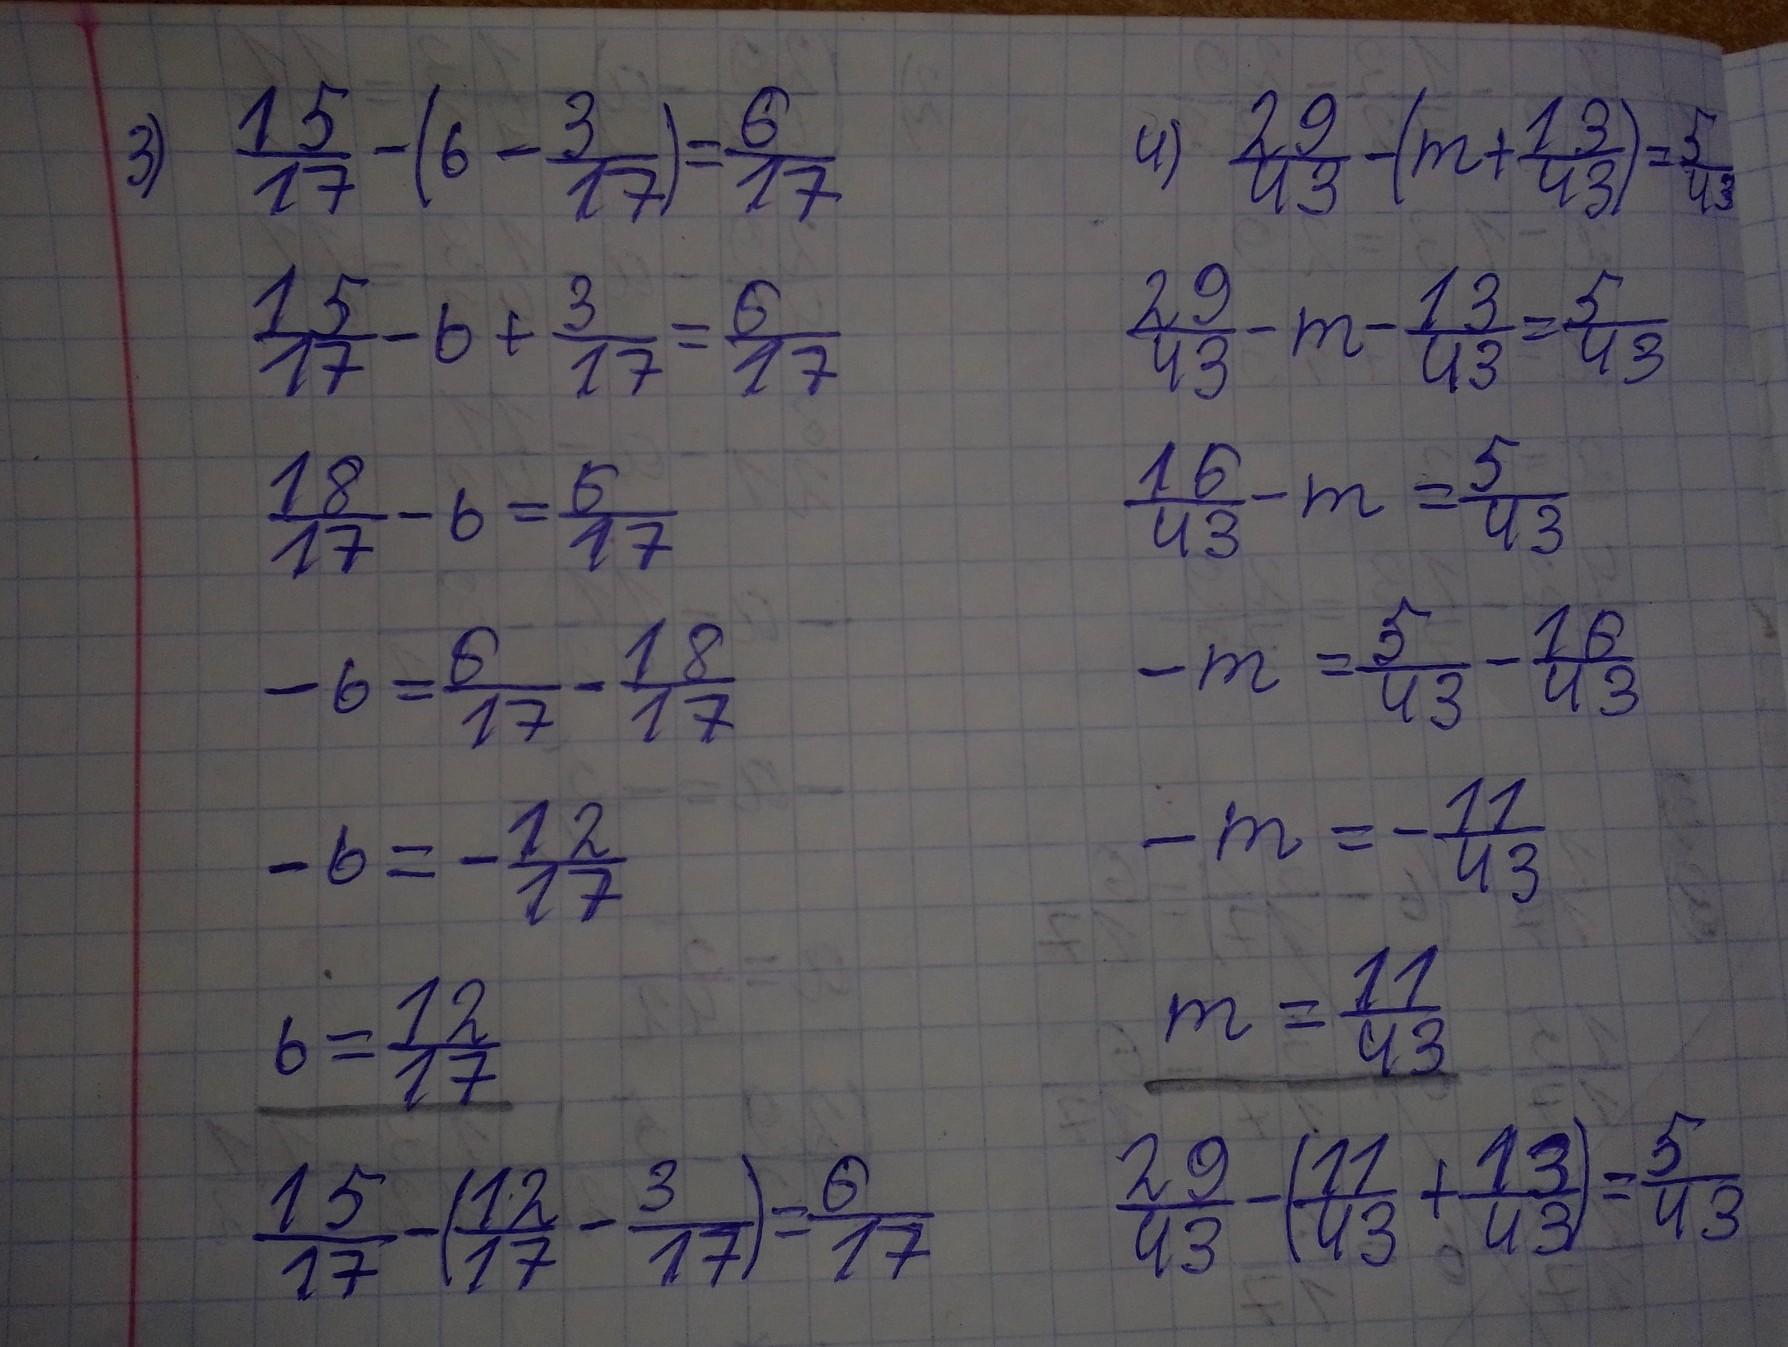 3) 15/17 - (b - 3/17) = 6/17
15/17 - b + 3/17 = 6/17
18/17 - b = 6/17
-b = 6/17 - 18/17
-b = -12/17
b = 12/17
15/17 - (12/17 - 3/17) = 6/17
4) 29/43 - (m + 13/43) = 5/43
29/43 - m - 13/43 = 5/43
16/43 - m = 5/43
-m = 5/43 - 16/43
-m = -11/43
m = 11/43
29/43 - (11/43 + 13/43) = 5/43